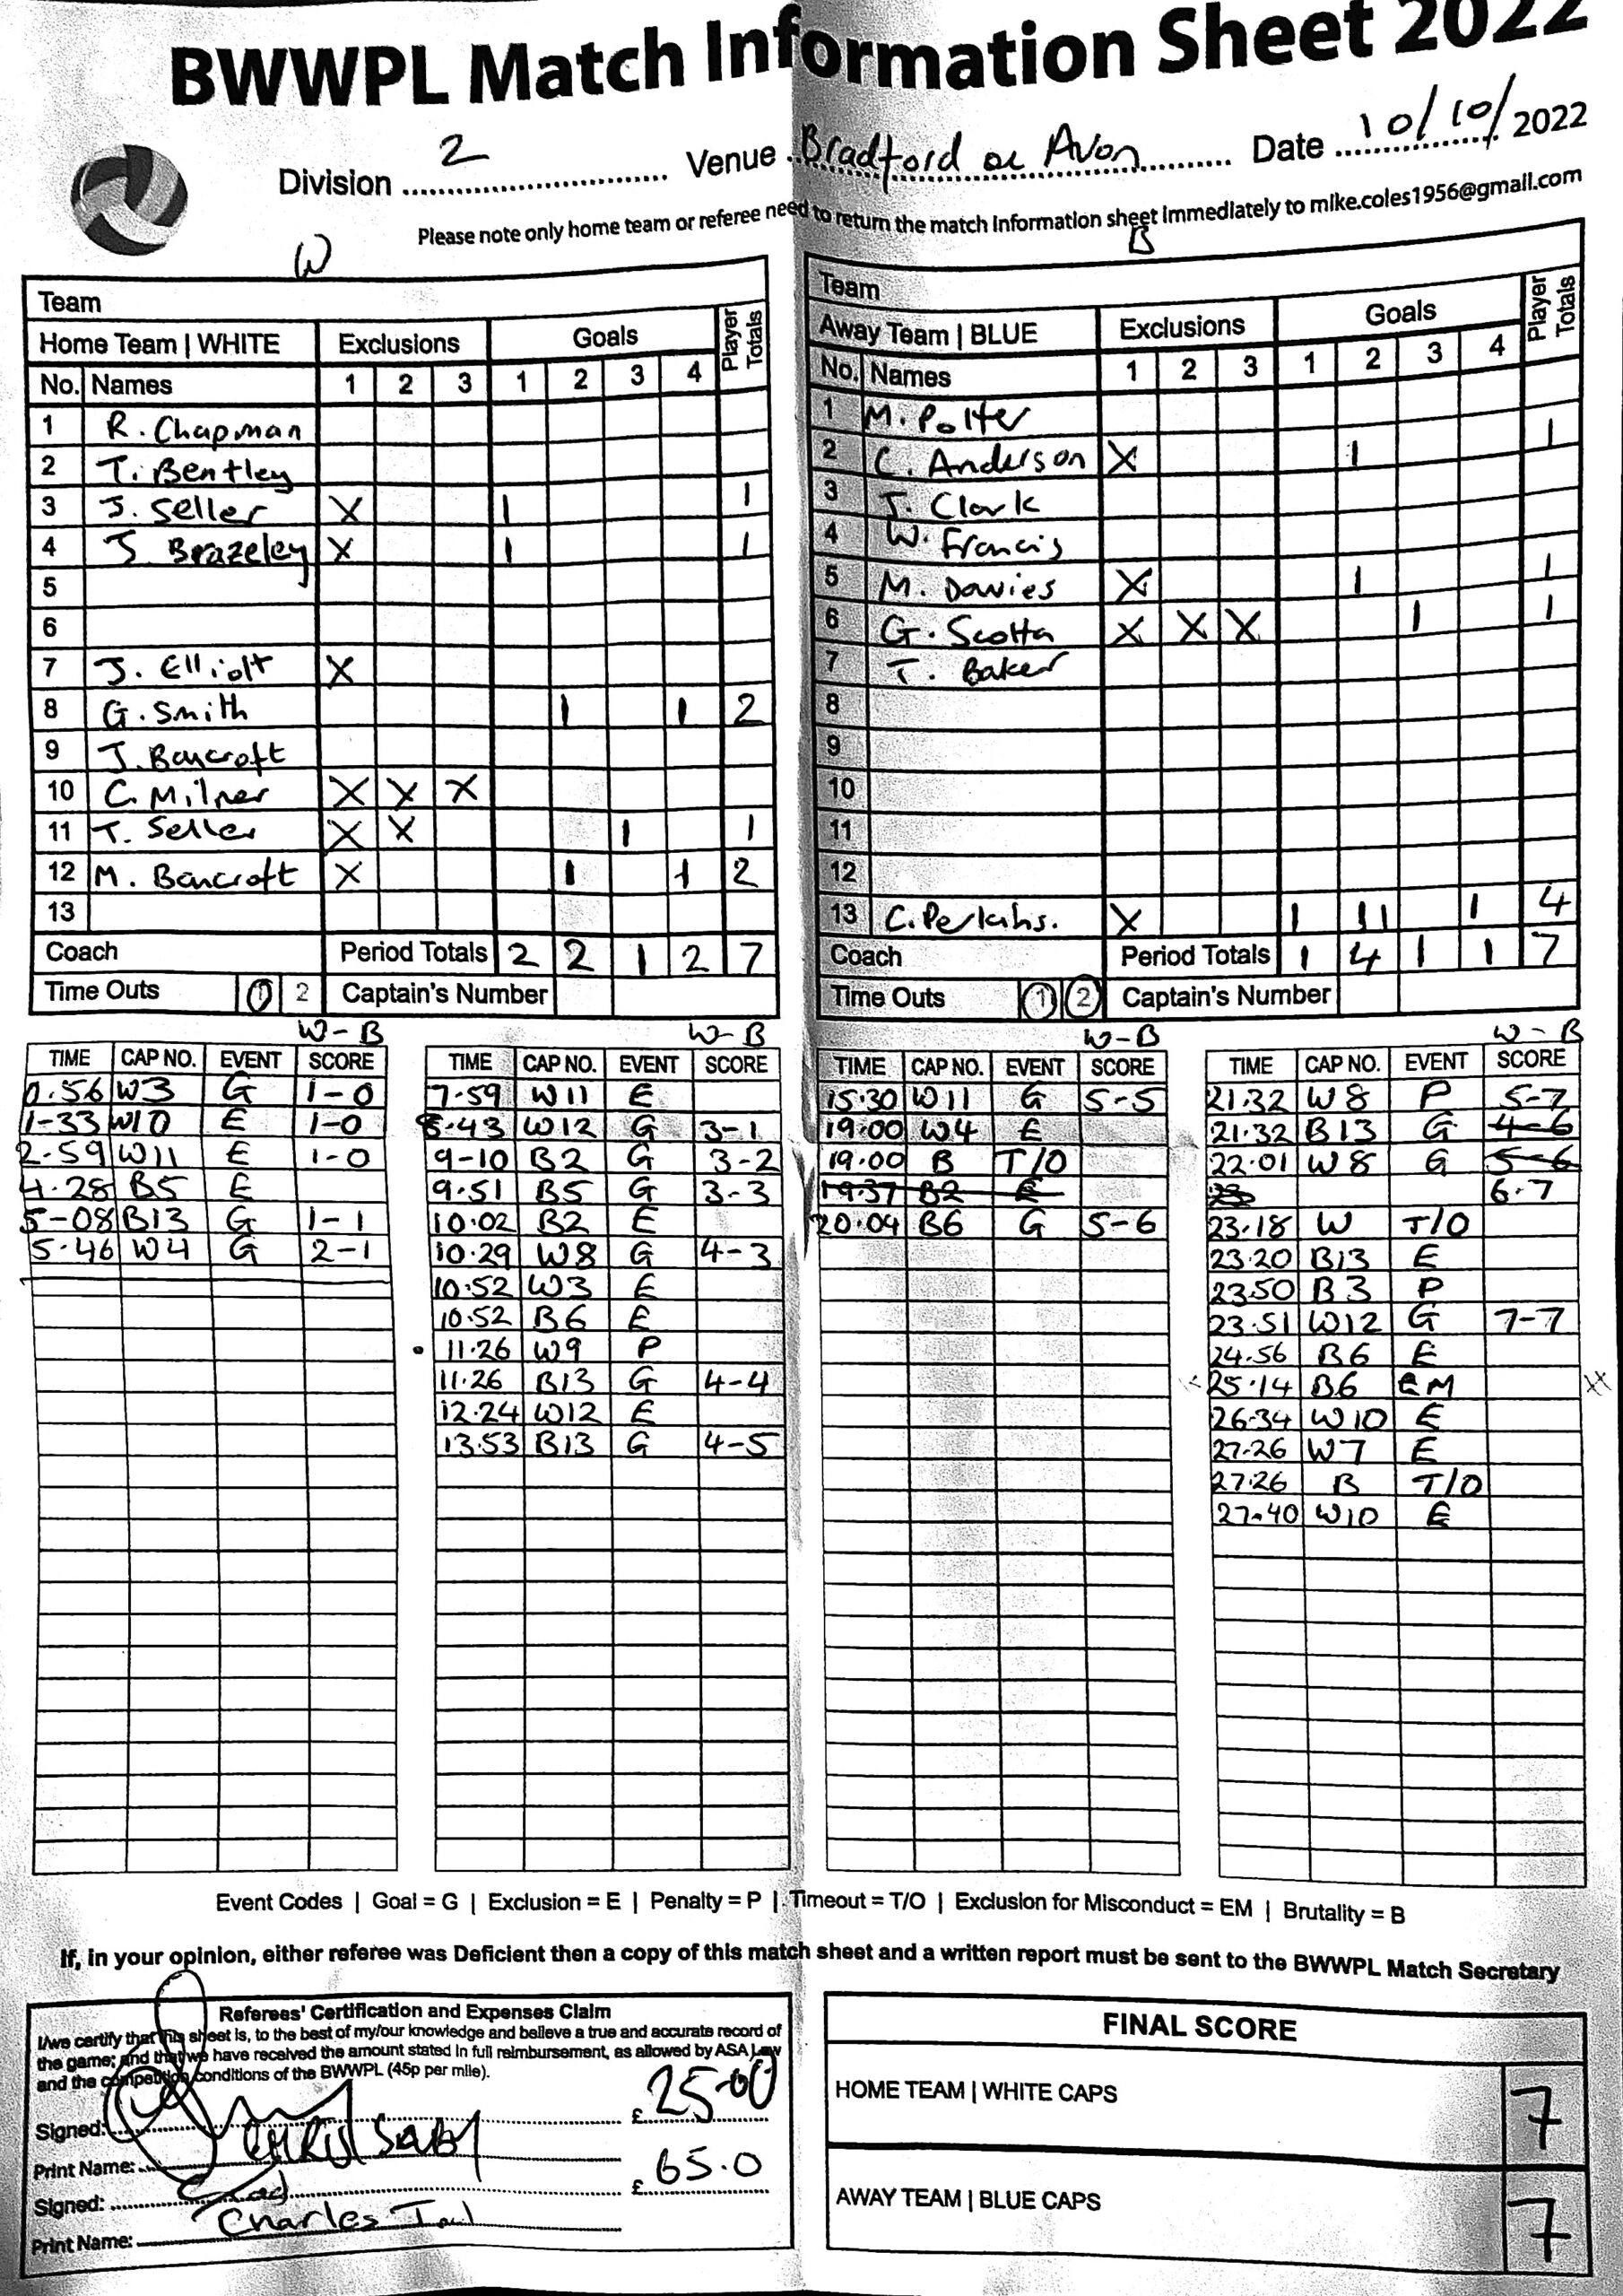 BWWPL Match Information Sheet 2022
Division 2 Venue Bradford on Avon Date 10/10/2022
Please note only home team or referee need to return the match information sheet immediately to mike.coles1956@gmail.com
W
Team
Home Team | WHITE Exclusions Goals Player Totals
No. Names 1 2 3 1 2 3 4
1 R. Chapman
2 T. Bentley
3 J. Seller X 1 1
4 J. Brazeley X 1 1
5
6
7 J. Elliott X
8 G. Smith 1 1 2
9 J. Bancroft
10 C. Milner X X X
11 T. Seller X X 1 1
12 M. Bancroft X 1 1 2
13
Coach Period Totals 2 2 1 2 7
Time Outs 1 2 Captain's Number
B
Team
Away Team | BLUE Exclusions Goals Player Totals
No. Names 1 2 3 1 2 3 4
1 M. Potter
2 C. Anderson X 1 1
3 J. Clark
4 W. Francis
5 M. Davies X 1 1
6 G. Scotta X X X 1 1
7 T. Baker
8
9
10
11
12
13 C. Perkins. X 1 11 1 4
Coach Period Totals 1 4 1 1 7
Time Outs 1 2 Captain's Number
W-B
TIME CAP NO. EVENT SCORE
0.56 W3 G 1-0
1-33 W10 E 1-0
2.59 W11 E 1-0
4.28 B5 E
5-08 B13 G 1-1
5.46 W4 G 2-1
W-B
TIME CAP NO. EVENT SCORE
7.59 W11 E
8.43 W12 G 3-1
9-10 B2 G 3-2
9.51 B5 G 3-3
10.02 B2 E
10.29 W8 G 4-3
10.52 W3 E
10.52 B6 E
11.26 W9 P
11.26 B13 G 4-4
12.24 W12 E
13.53 B13 G 4-5
W-B
TIME CAP NO. EVENT SCORE
15.30 W11 G 5-5
19.00 W4 E
19.00 B T/O
19.37 B2 E
20.04 B6 G 5-6
W-B
TIME CAP NO. EVENT SCORE
21.32 W8 P 5-7
21.32 B13 G 4-6
22.01 W8 G 5-6
23 6.7
23.18 W T/O
23.20 B13 E
23.50 B3 P
23.51 W12 G 7-7
24.56 B6 E
25.14 B6 EM
26.34 W10 E
27.26 W7 E
27.26 B T/O
27.40 W10 E
Event Codes | Goal = G | Exclusion = E | Penalty = P | Timeout = T/O | Exclusion for Misconduct = EM | Brutality = B
If, in your opinion, either referee was Deficient then a copy of this match sheet and a written report must be sent to the BWWPL Match Secretary
Referees' Certification and Expenses Claim
I/we certify that this sheet is, to the best of my/our knowledge and believe a true and accurate record of
the game; and that we have received the amount stated in full reimbursement, as allowed by ASA Law
and the competition conditions of the BWWPL (45p per mile).
Signed: £ 25-00
Print Name: CHRIS
Signed: £ 65.0
Print Name: Charles
FINAL SCORE
HOME TEAM | WHITE CAPS 7
AWAY TEAM | BLUE CAPS 7